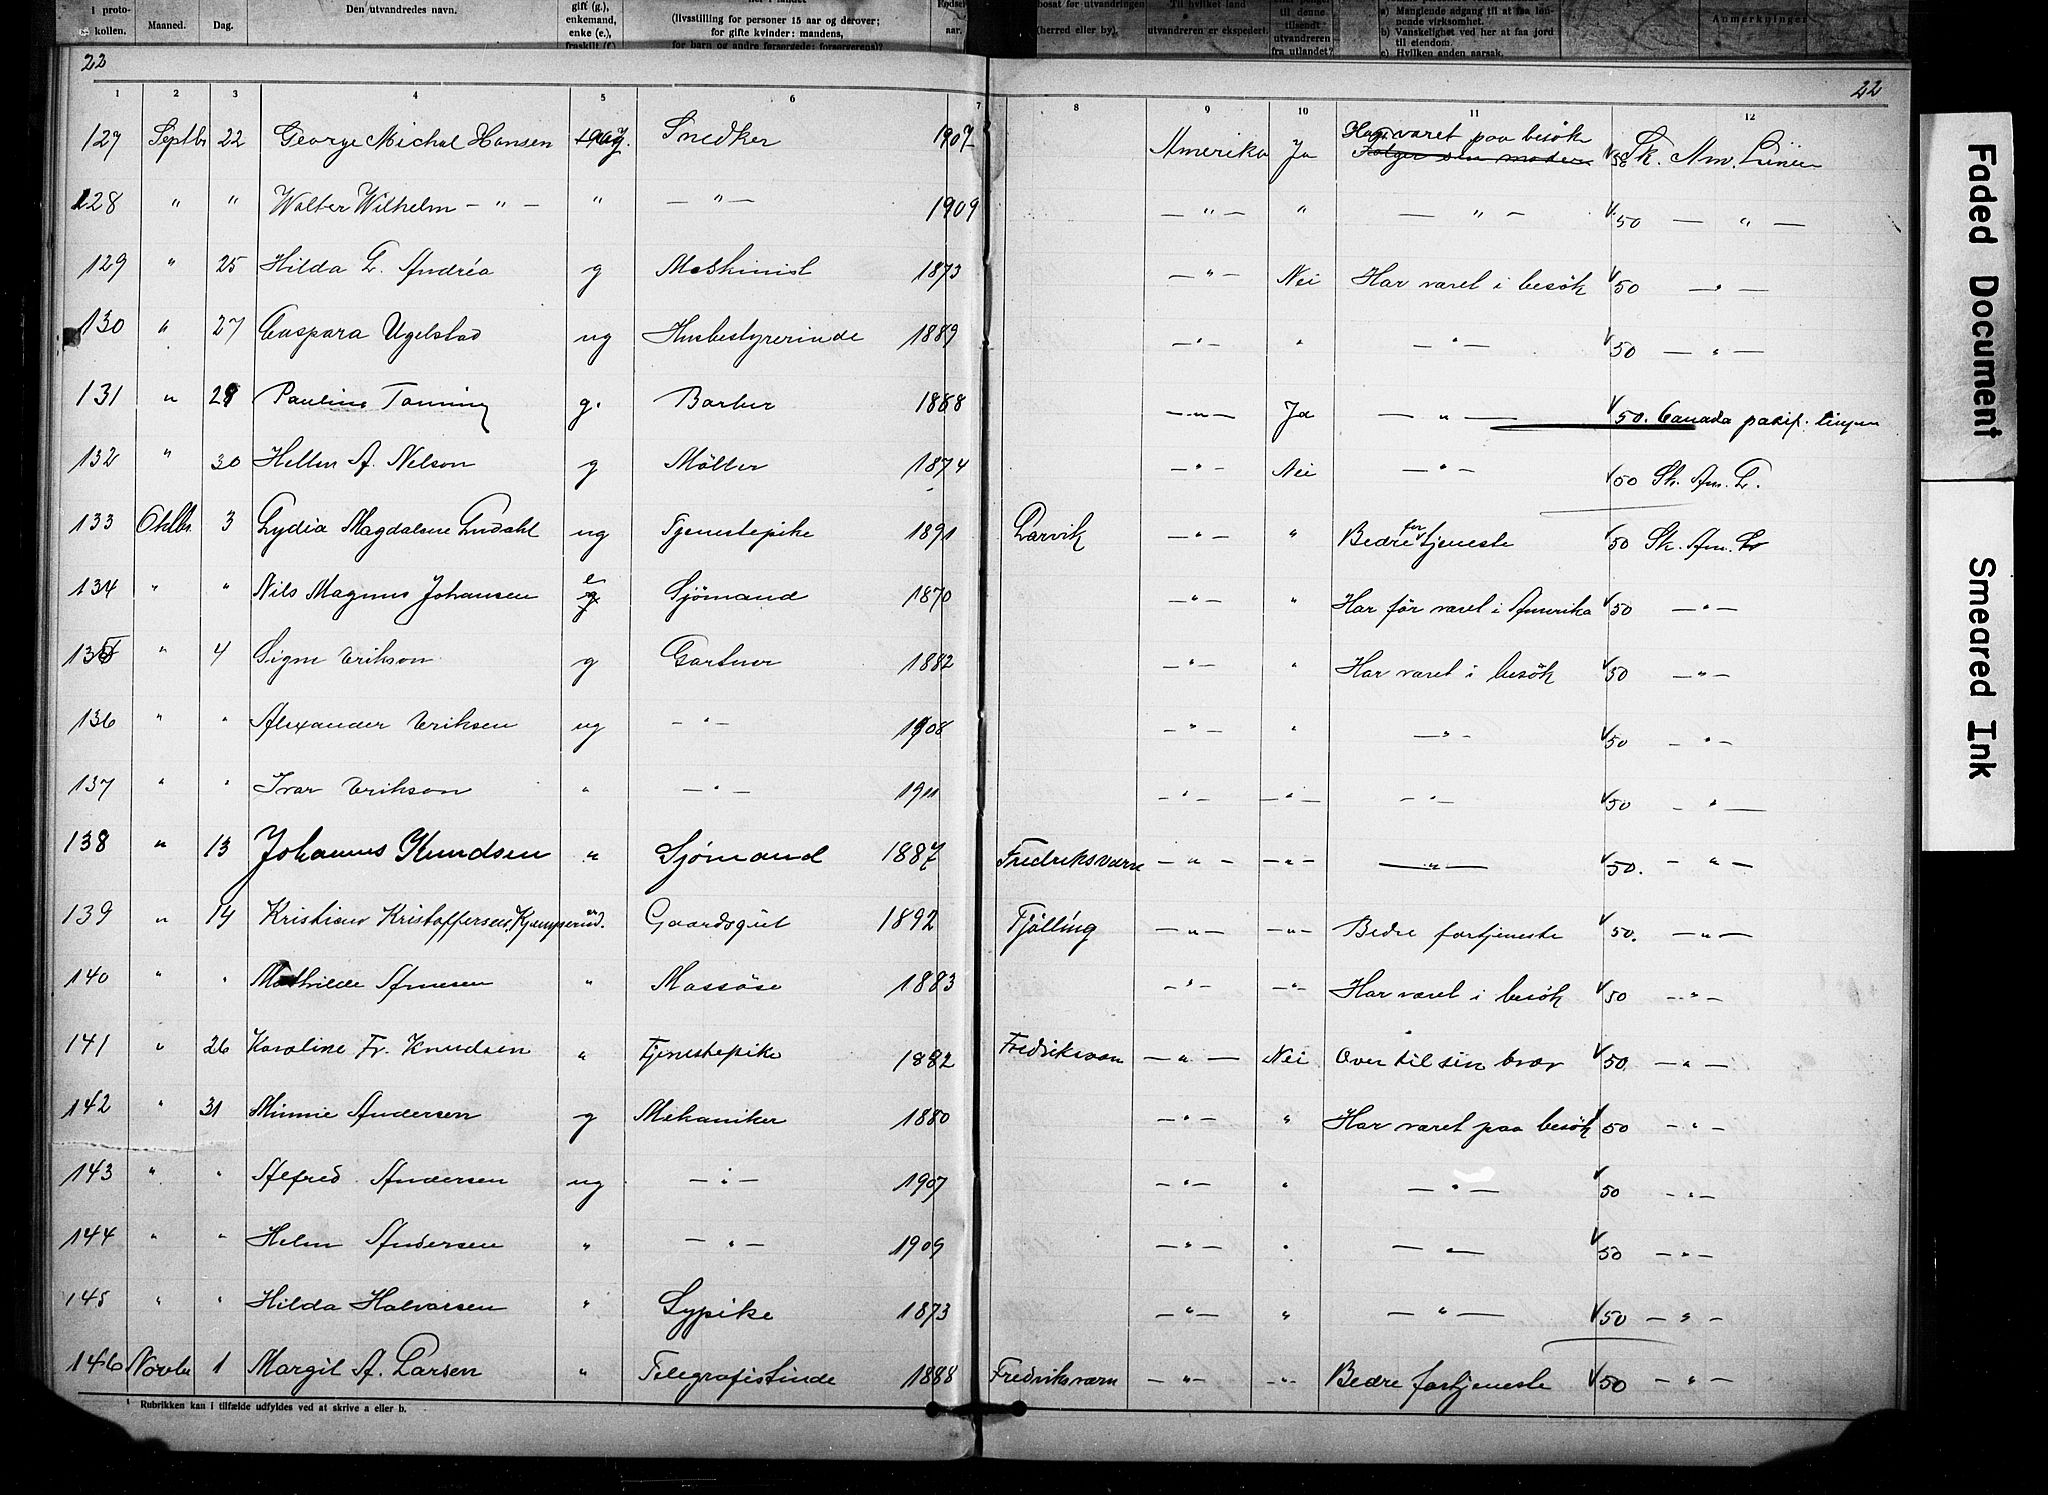 i proto- Den utvandredes navn. gift (g.), (livsstilling for personer 15 aar og derover; bosat før utvandringen Til hvilket land til denne a) Manglende adgang til at faa løn-
kollen. Maaned. Dag. enkemand, for gifte kvinder: mandens, aar. (herred eller by). utvandreren er ekspedert. tilsendt nende virksomhet. Anmerkninger
enke (e.), for barn og andre forsørgede: forsørgerens)? utvandreren b) Vanskelighet ved her at faa jord
fraskilt (f.) fra utlandet? til eiendom.
c) Hvilken anden aarsak.
22 22
1 2 3 4 5 6 7 8 9 10 11 12
127 Septbr 22 George Michal Hansen ug. Snedker 1907 Amerika Ja Har været paa besök Følger sin moder 50 Sk. Am. Linien
128 " " Walter Wilhelm - " - " - " - 1909 - " - " - " - 50 - " -
129 " 25 Hilda L. Andréa g Maskinist 1873 - " - Nei Har været i besök 50 - " -
130 " 27 Caspara Ugelstad ug Husbestyrerinde 1889 - " - " - " - 50 - " -
131 " 28 Pauline Tanning g. Barber 1868 - " - Ja - " - 50. Canada pasif. linjen
132 " 30 Hellen A. Nelson g Möller 1874 - " - Nei - " - 50 Sk. Am. L.
133 Oktbr. 3 Lydia Magdalene Lindahl ug Tjenestepike 1891 Larvik - " - " Bedre fortjeneste 50 Sk. Am. L
134 " " Nils Magnus Johansen e g Sjömand 1870 - " - " Har för været i Amerika 50 - " -
135 " 4 Signe Erikson g Gartner 1882 - " - " Har været i besök 50 - " -
136 " " Alexander Eriksen ug - " - 1908 - " - " - " - 50 - " -
137 " " Ivar Erikson " - " - 1911 - " - - " - - " - 50 - " -
138 " 13 Johannes Knudsen " Sjömand 1887 Fredriksværn - " - - " - - " - 50. - " -
139 " 14 Kristian Kristoffersen Kjempperud. " Gaardsgut 1892 Tjölling - " - - " - Bedre fortjeneste 50. - " -
140 " " Mathilde Arnesen " Massöse 1883 - " - - " - Har været i besök 50 - " -
141 " 26 Karoline Fr. Knudsen " Tjenestepike 1882 Fredriksværn - " - Nei Over til sin bror 50. - " -
142 " 31 Minnie Andersen g Mekaniker 1880 - " - " Har været paa besök 50 - " -
143 " " Alfred Andersen ug - " - 1907 - " - " - " - 50 - " -
144 " " Helen Andersen " - " - 1909 - " - " - " - 50 - " -
145 " " Hilda Halvorsen " Sypike 1873 - " - " - " - 50 - " -
146 Novbr 1 Margit A. Larsen " Telegrafistinde 1888 Fredriksværn - " - - " - Bedre fortjeneste 50 - " -
¹ Rubrikken kan i tilfælde udfyldes ved at skrive a eller b.
Faded Document
Smeared Ink